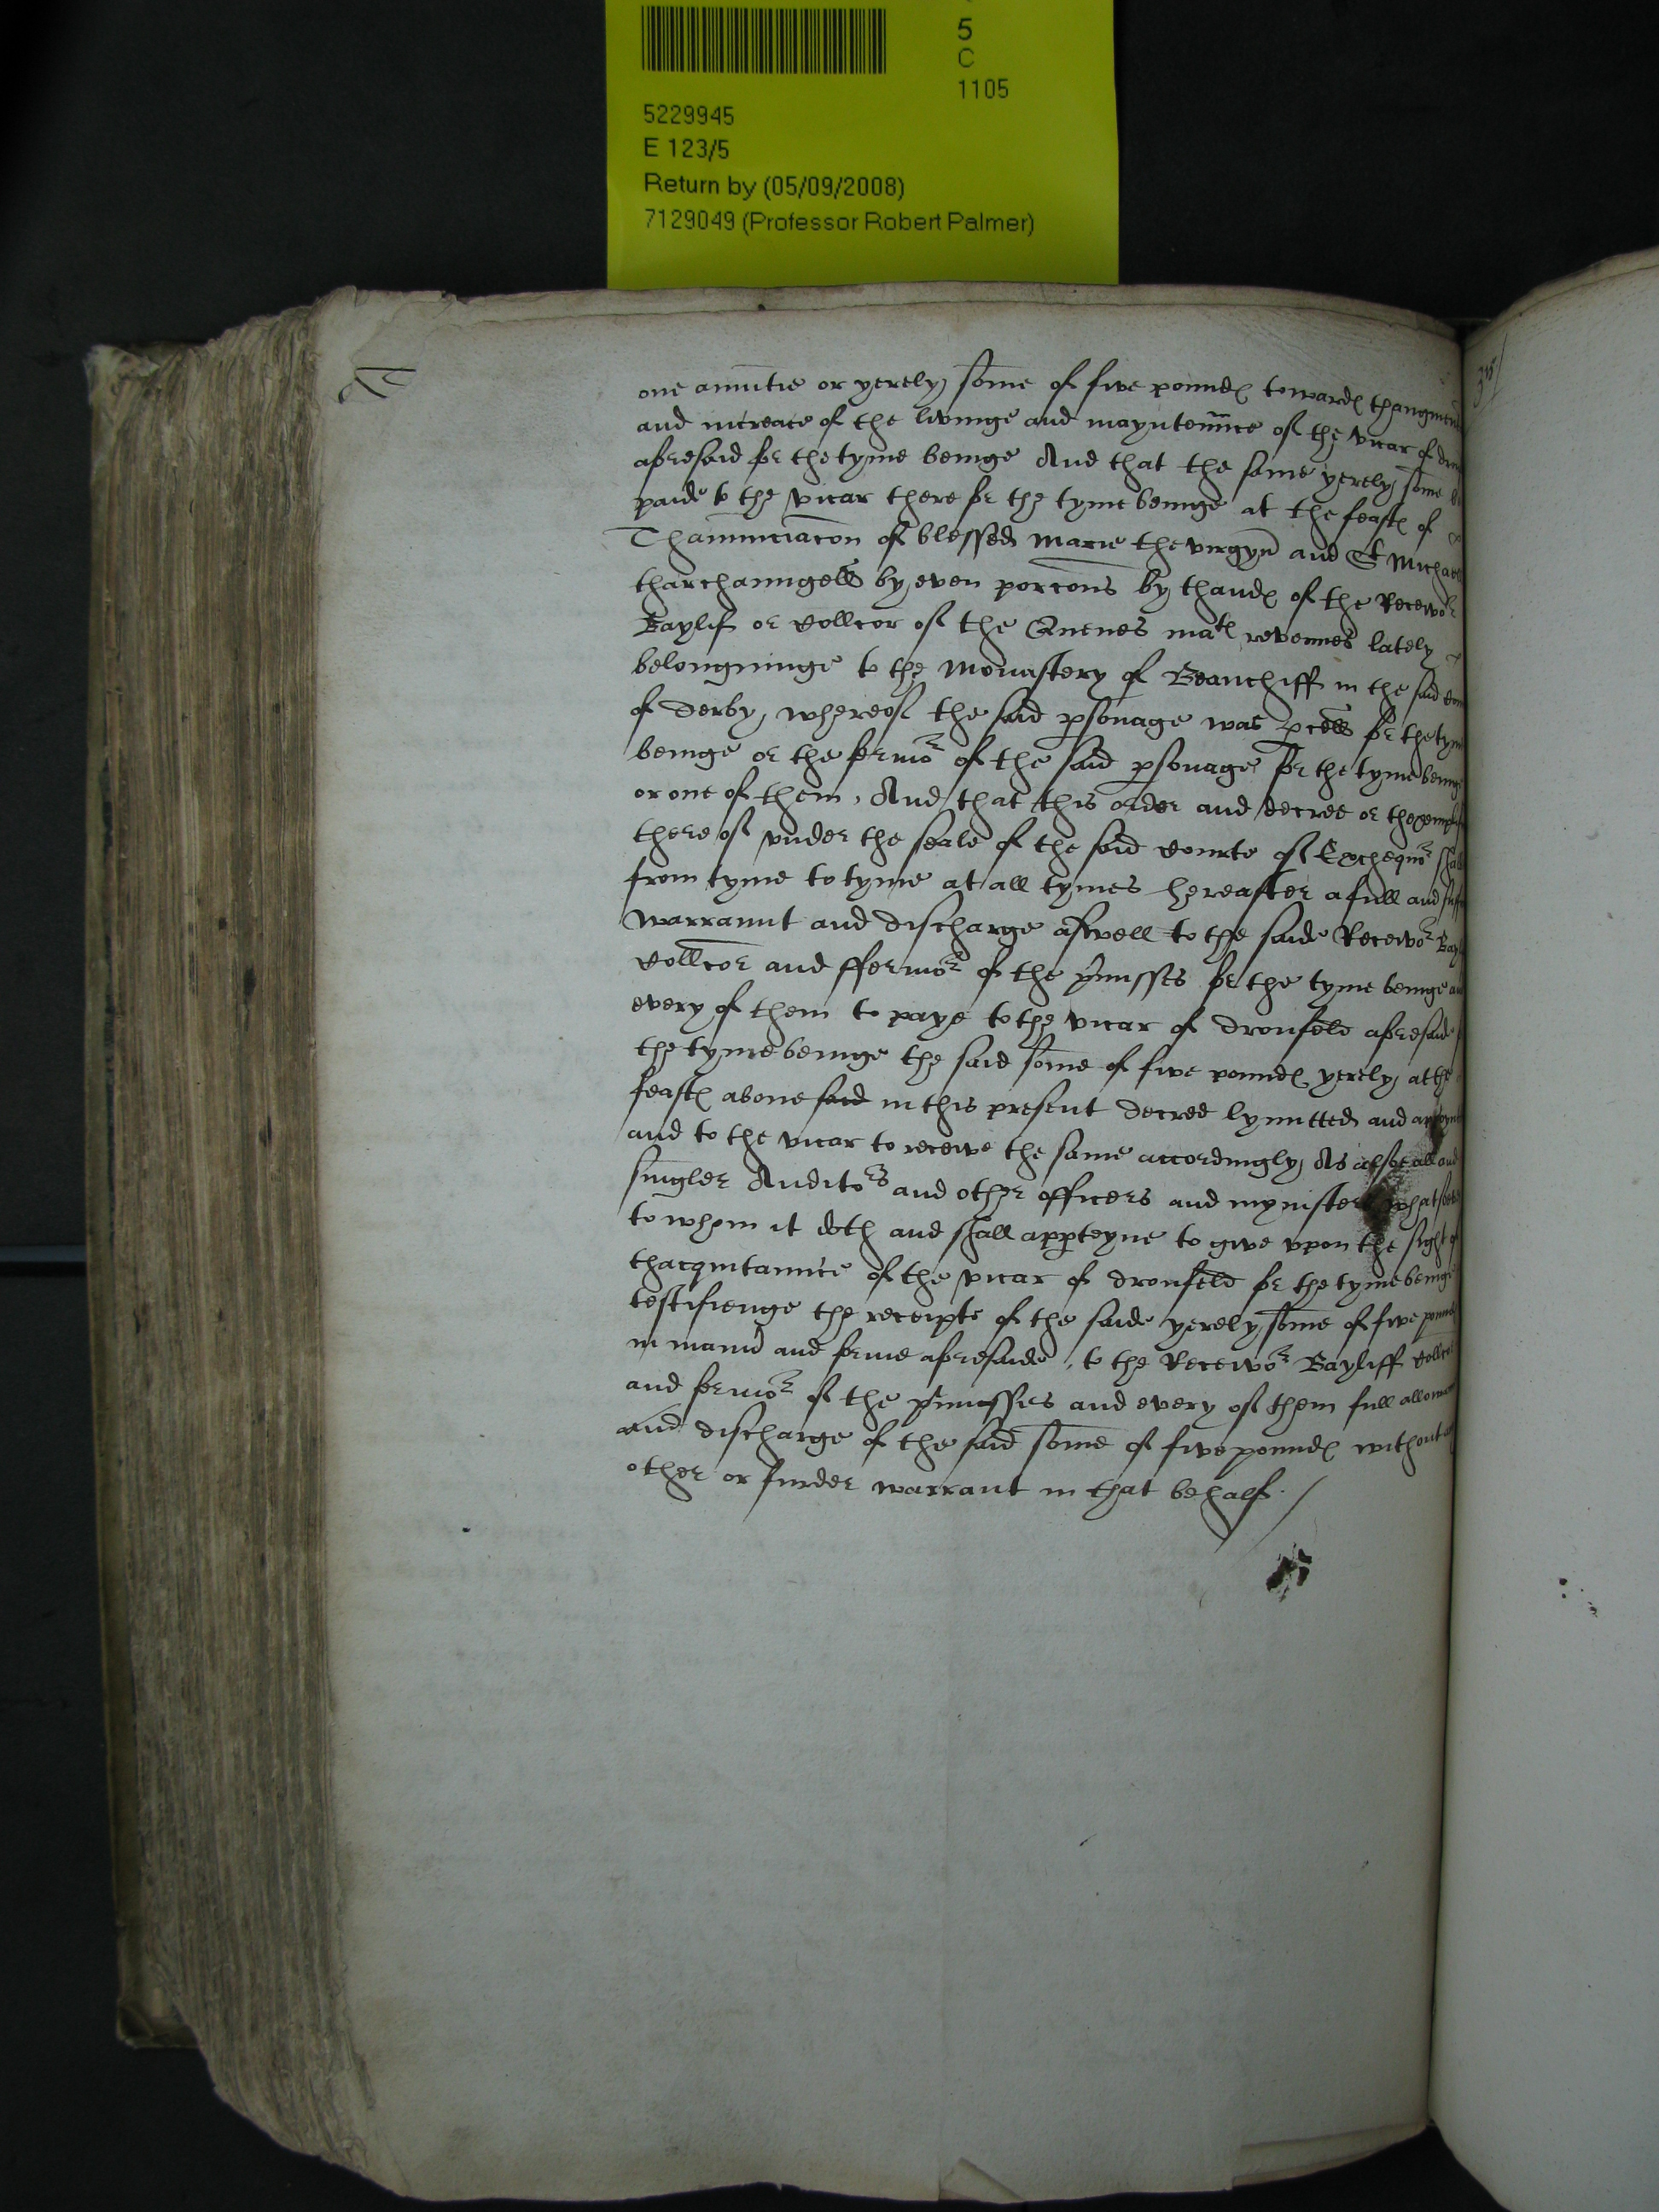 5
C
1105
5229945
E 123/5
Return by (05/09/2008)
7129049 (Professor Robert Palmer)
one annuitie or yerely some of five pounds towards thaugment
and increace of the livinge and mayntennce of the vicar of dron
aforesaid for the tyme beinge And that the same yerely some be
paide to the vicar there for the tyme beinge at the feasts of
Thannunciacon of blessed marie the virgyn and St Michaell
tharchanngell by even porcons by thands of the Receivor
Baylif or Collcor of the Quenes mats revenues lately
belonginge to the Monastery of Beauchiff in the said Com
of Derby whereof the said psonage was pcell for the tyme
beinge or the fermor of the said psonage for the tyme beinge
or one of them. And that this order and decree or thexempl
thereof under the seale of the said Courte of Exchequer shal
from tyme to tyme at all tymes hereafter a full and suff
warrannt and discharge aswell to the saide Receivor Bay
Collcor and ffermor of the pmisses for the tyme beinge and
every of them to paye to the vicar of Dronfeld aforesaide
the tyme beinge the said some of five pounds yerely at the
feasts above said in this present decree lymitted and appoynt
and to the vicar to receive the same accordingly As also all and
singler Auditors and other officers and mynisters whatsoev
to whom it doth and shall appteyne to give upon the sight of
thacquitannce of the vicar of Dronfeld for the tyme beinge
testifienge the receipte of the saide yerely some of five pounds
in mann and forme aforesaide, to the Receivor Bayliff Collco
and fermor of the pmisses and every of them full allowan
and discharge of the said some of five pounds without any
other or furder warrant in that behalf /